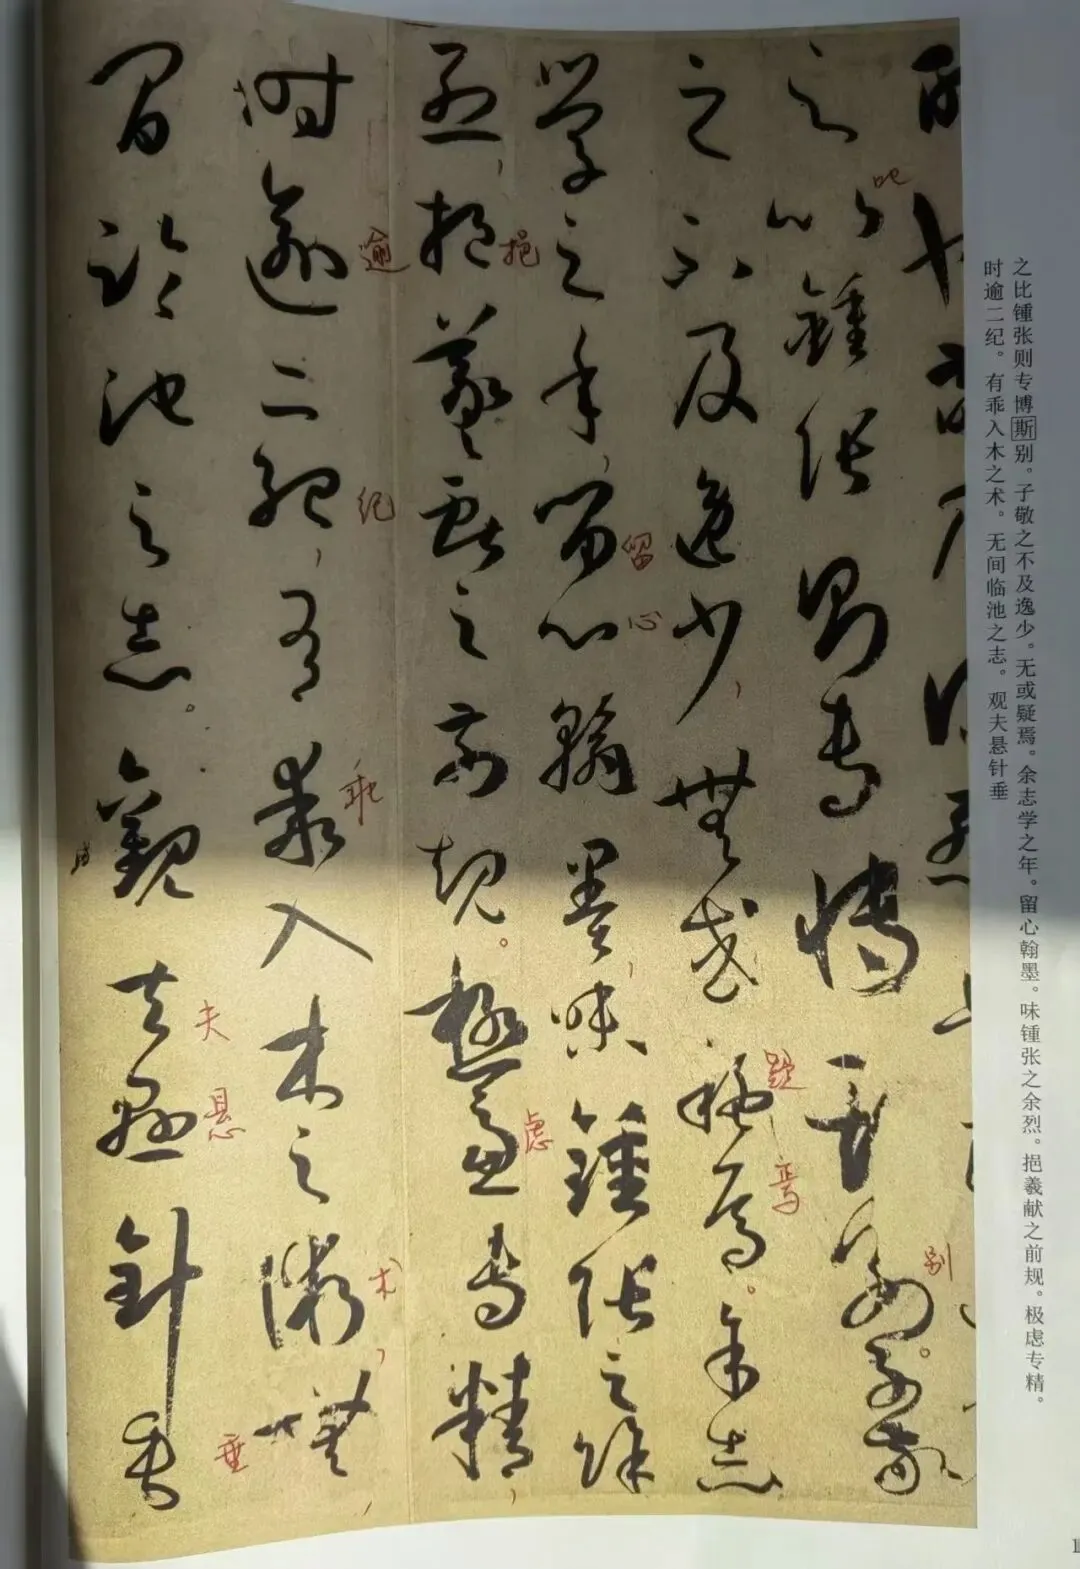 之比锺张则专博斯别。子敬之不及逸少。无或疑焉。余志学之年。留心翰墨。味锺张之余烈。挹羲献之前规。极虑专精。
时逾二纪。有乖入木之术。无间临池之志。观夫悬针垂
之比鍾張則專博斯別。子敬
别
之不及逸少，無或疑焉。余志
疑
焉
學之年，留心翰墨，味鍾張之餘
留
心
烈，挹羲獻之前規。極慮專精，
挹
虑
時逾二紀，有乖入木之術，無
逾
纪
乖
术
間臨池之志。觀夫懸針垂
夫
悬
垂